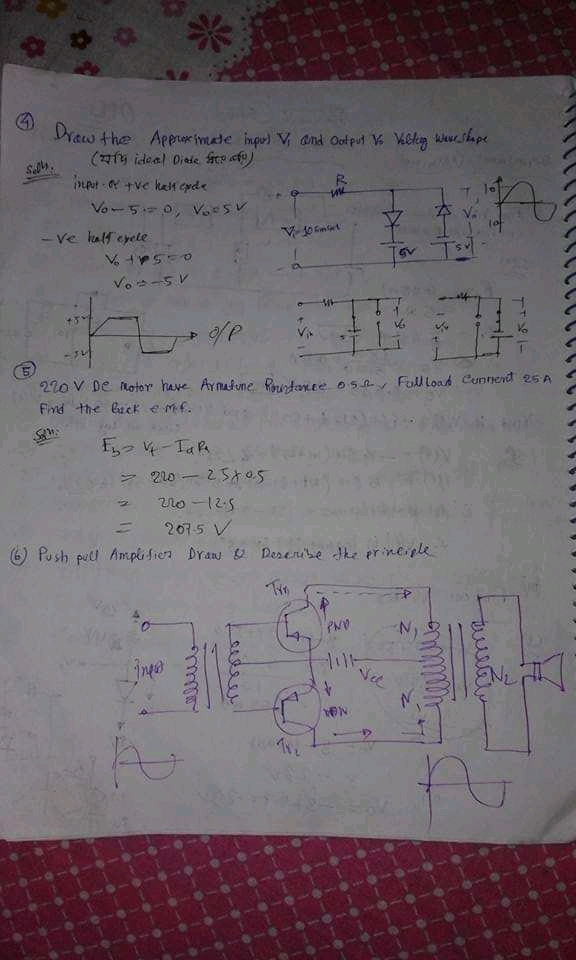 ④ Draw the Approximate input Vi and Output Vo Voltag waveshape
(যদি ideal Diode হয়)
Soln.
input or +ve half cycle
Vo - 5 = 0, Vo = 5V
-ve half cycle
Vo + 5 = 0
Vo = -5V
R
Vi = 10 sinωt
5V
5V
Vo
10
10
+5V
-5V
O/P
Vin
Vo
Vin
Vo
⑤
220 V DC motor have Armature Resistance 0.5Ω, Full Load Current 25 A
Find the Back e.m.f.
Soln.
Eb = Vt - IaRa
= 220 - 25 × 0.5
= 220 - 12.5
= 207.5 V
⑥ Push pull Amplifier Draw & Describe the principle
Tr1
PNP
input
Vcc
N1
N1
N2
Tr2